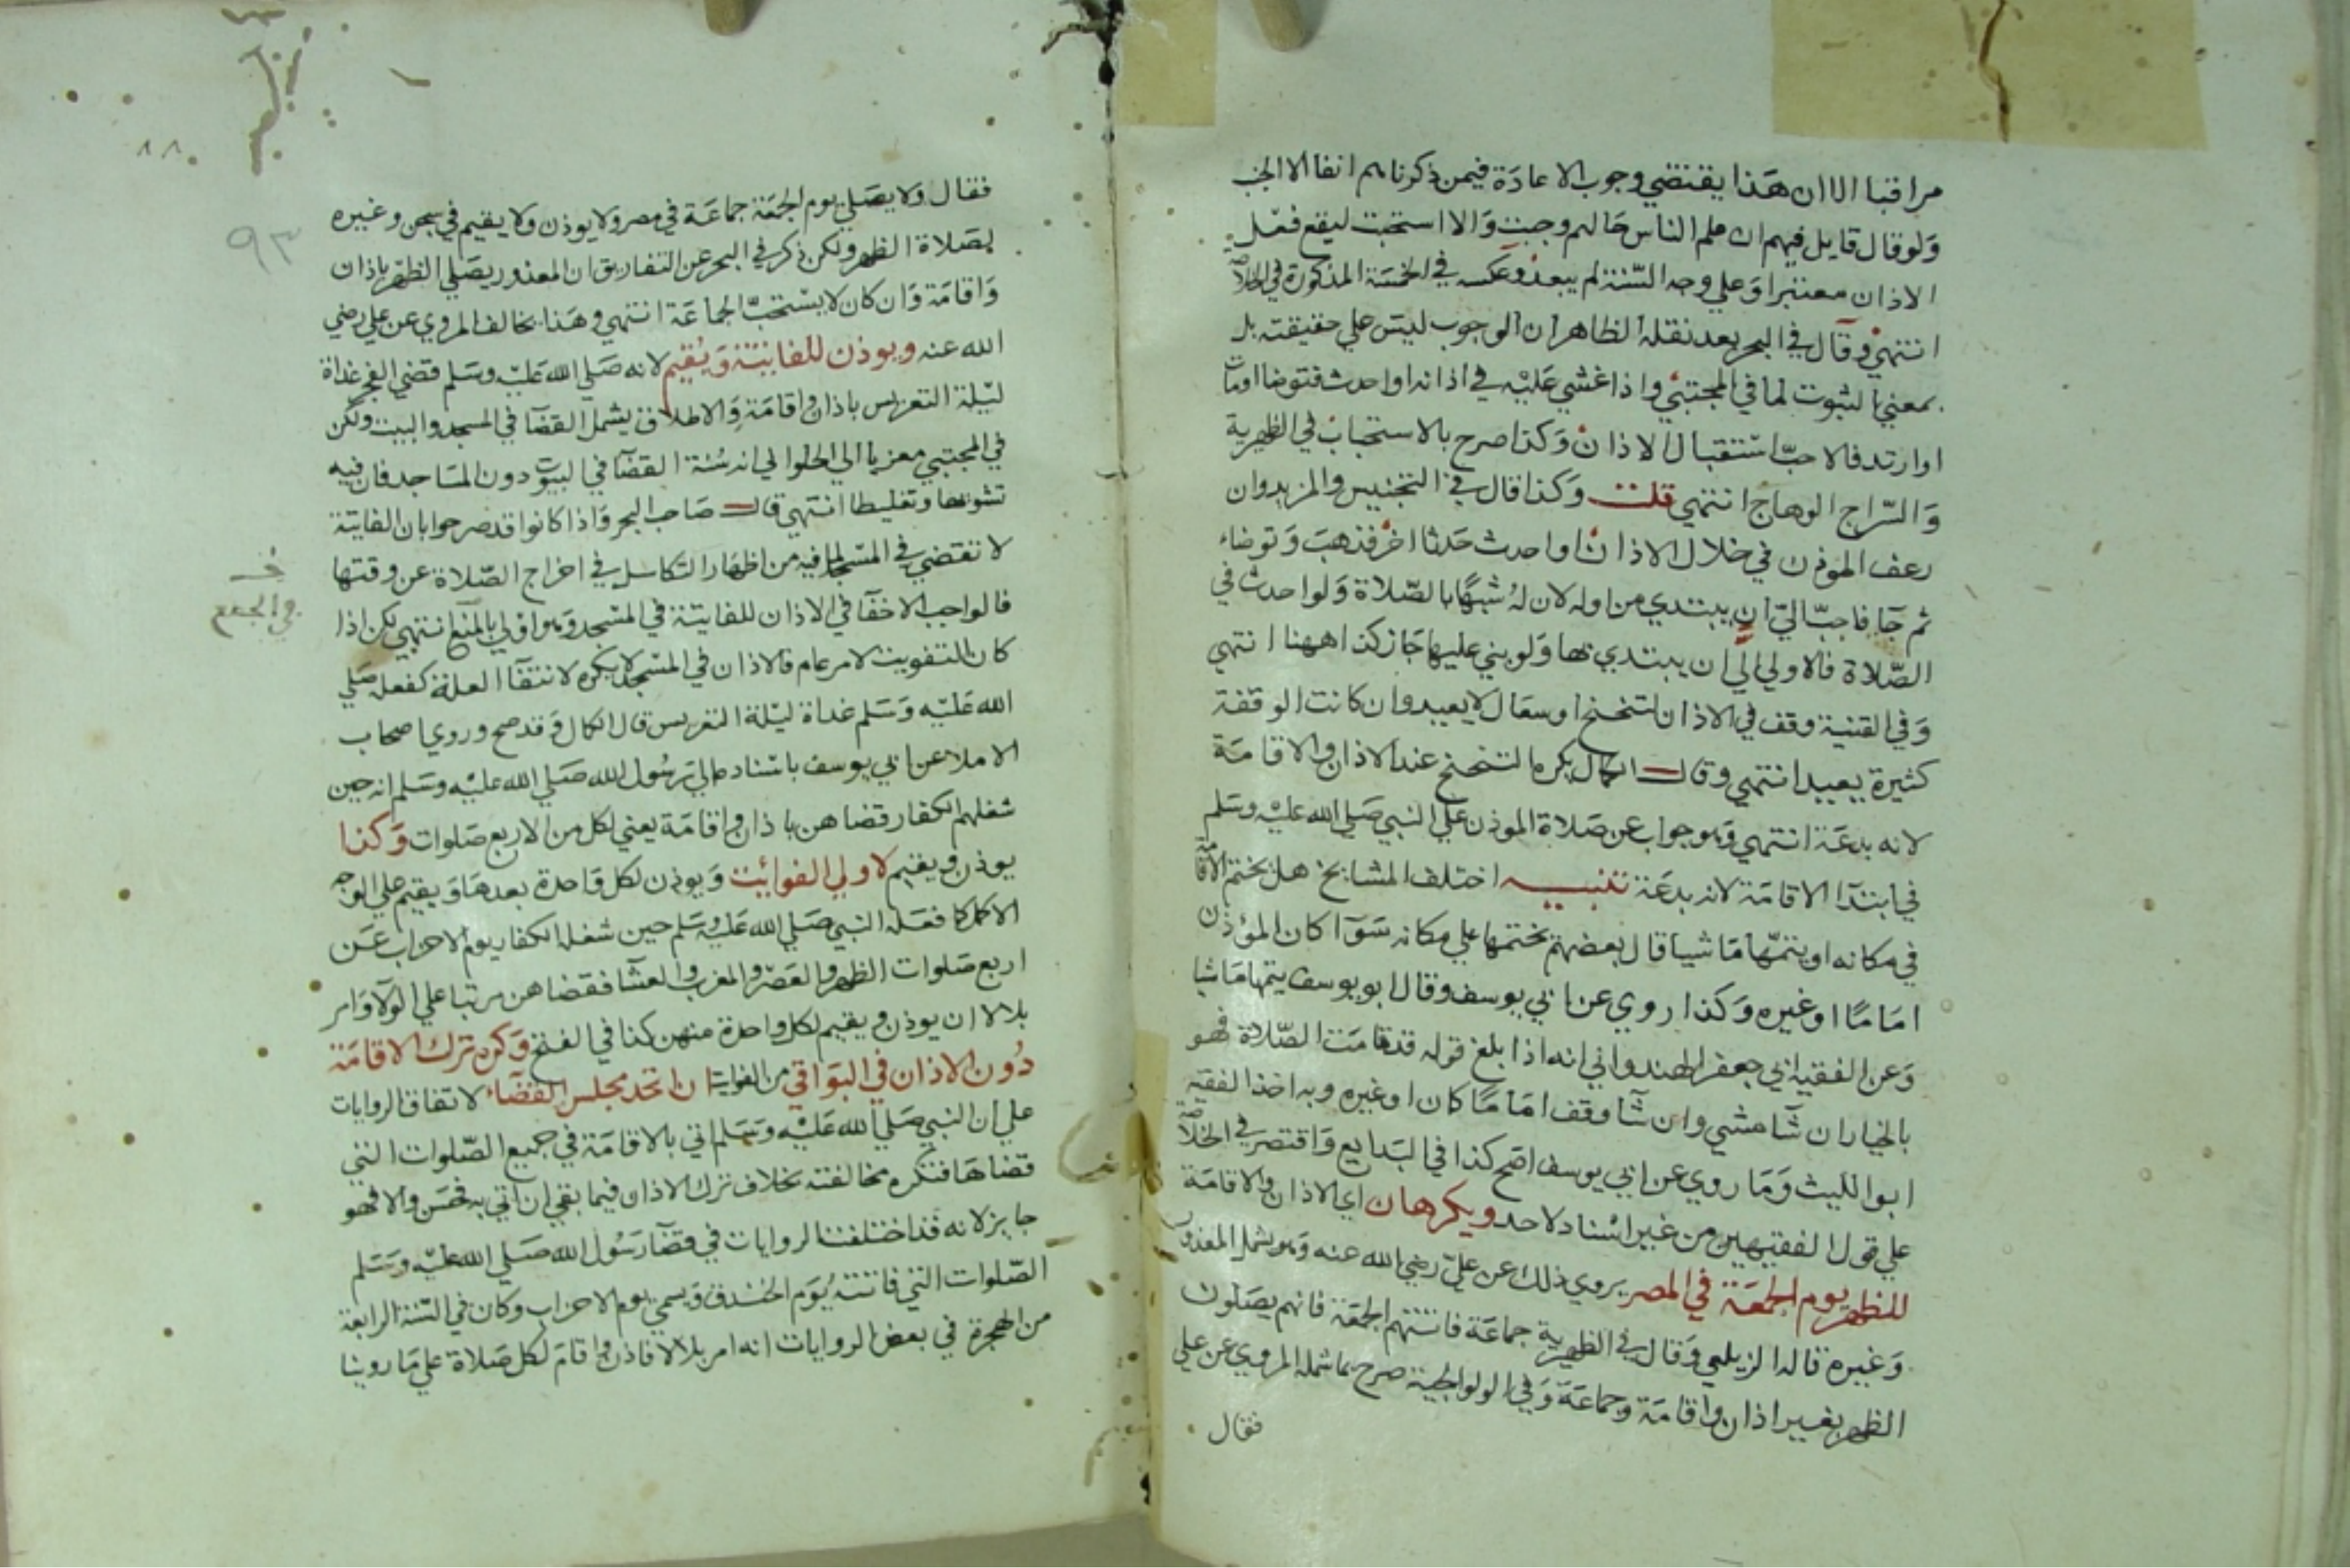 مراقبا الا ان هذا يقتضي وجوب الاعادة فيمن ذكرناهم انفا الا الجنب
ولو قال قايل فيهم ان علم الناس حالهم وجبت والا استحبت ليقع فعل
الاذان معتبرا وعلي وجه السنة لم يبعد وعكسه في الخمسة المذكورة في الخلاصة
انتهي وقال في البحر بعد نقله الظاهر ان الوجوب ليس علي حقيقته بل
بمعني الثبوت لما في المجتبي واذا غشي عليه في اذانه او احدث فتوضا او مات
او ارتد فالاحب استقبال الاذان وكذا صرح بالاستحباب في الظهيرية
والسراج الوهاج انتهي قلت وكذا قال في التجنيس والمزيد وان
رعف الموذن في خلال الاذان او احدث حدثا اخر فذهب وتوضاء
ثم جا فاحب الي ان يبتدي من اوله لان له شبها بالصلاة ولو احدث في
الصلاة فالاولي الي ان يبتدي بها ولو بني عليها جاز كذا ههنا انتهي
وفي القنية وقف في الاذان لتنحنح او سعال لا يعيد وان كانت الوقفة
كثيرة يعيد انتهي وقال الكمال يكره التنحنح عند الاذان والاقامة
لانه بدعة انتهي وهو جواب عن صلاة الموذن علي النبي صلي الله عليه وسلم
في ابتدآ الاقامة لانه بدعة تنبيه اختلف المشايخ هل يختم الاقامة
في مكانه او يتمها ماشيا قال بعضهم يختمها علي مكانه سوآ كان المؤذن
اماما او غيره وكذا روي عن ابي يوسف وقال ابو يوسف يتمها ماشيا
وعن الفقيه ابي جعفر الهندواني انه اذا بلغ قوله قد قامت الصلاة فهو
بالخيار ان شآ مشي وان شآ وقف اماما كان او غيره وبه اخذ الفقيه
ابو الليث وما روي عن ابي يوسف اصح كذا في البدايع واقتصر في الخلاصة
علي قول الفقيهين من غير اسناد لاحد ويكرهان اي الاذان والاقامة
للظهر يوم الجمعة في المصر يروي ذلك عن علي رضي الله عنه وهو يشمل المعذور
وغيره قاله الزيلعي وقال في الظهيرية جماعة فاتتهم الجمعة فانهم يصلون
الظهر بغير اذان واقامة وجماعة وفي الولوالجية صرح بما شمله المروي عن علي
فقال
٨٨
٩٣
فقال ولا يصلي يوم الجمعة جماعة في مصر ولا يوذن ولا يقيم في سجن وغيره
لصلاة الظهر ولكن ذكر في البحر عن التفاريق ان المعذور يصلي الظهر باذان
واقامة وان كان لا يستحب الجماعة انتهي وهذا يخالف المروي عن علي رضي
الله عنه ويوذن للفايتة ويقيم لانه صلي الله عليه وسلم قضي الفجر غداة
ليلة التعريس باذان واقامة والاطلاق يشمل القضآ في المسجد والبيت ولكن
في المجتبي معزيا الي الحلواني انه سنة القضآ في البيوت دون المساجد فان فيه
تشويشا وتغليطا انتهي قال صاحب البحر واذا كانوا قد صرحوا بان الفايتة
لا تقضي في المسجد لما فيه من اظهار التكاسل في اخراج الصلاة عن وقتها
فالواجب الاخفآ في الاذان للفايتة في المسجد وهو اولي بالمنع انتهي لكن اذا
كان التفويت لامر عام فالاذان في المسجد لا يكره لانتفآ العلة كفعله صلي
الله عليه وسلم غداة ليلة التعريس قال الكمال وقد صح وروي اصحاب
الاملا عن ابي يوسف باسناده الي رسول الله صلي الله عليه وسلم انه حين
شغلهم الكفار قضاهن باذان واقامة يعني لكل من الاربع صلوات وكذا
يوذن ويقيم لاولي الفوائيت ويوذن لكل واحدة بعدها ويقيم علي الوجه
الاكمل كما فعله النبي صلي الله عليه وسلم حين شغله الكفار يوم الاحزاب عن
اربع صلوات الظهر والعصر والمغرب والعشآ فقضاهن مرتبا علي الولآ وامر
بلالا ان يوذن ويقيم لكل واحدة منهن كذا في الفتح وكره ترك الاقامة
دون الاذان في البواقي من الفوايت ان اتحد مجلس القضاء لاتفاق الروايات
علي ان النبي صلي الله عليه وسلم اتي بالاقامة في جميع الصلوات التي
قضاها فتكره مخالفته بخلاف ترك الاذان فيما بقي ان اتي به فحسن والا فهو
جايز لانه قد اختلفت الروايات في قضآ رسول الله صلي الله عليه وسلم
الصلوات التي فاتته يوم الخندق ويسمي يوم الاحزاب وكان في السنة الرابعة
من الهجرة في بعض الروايات انه امر بلالا فاذن واقام لكل صلاة علي ما روينا